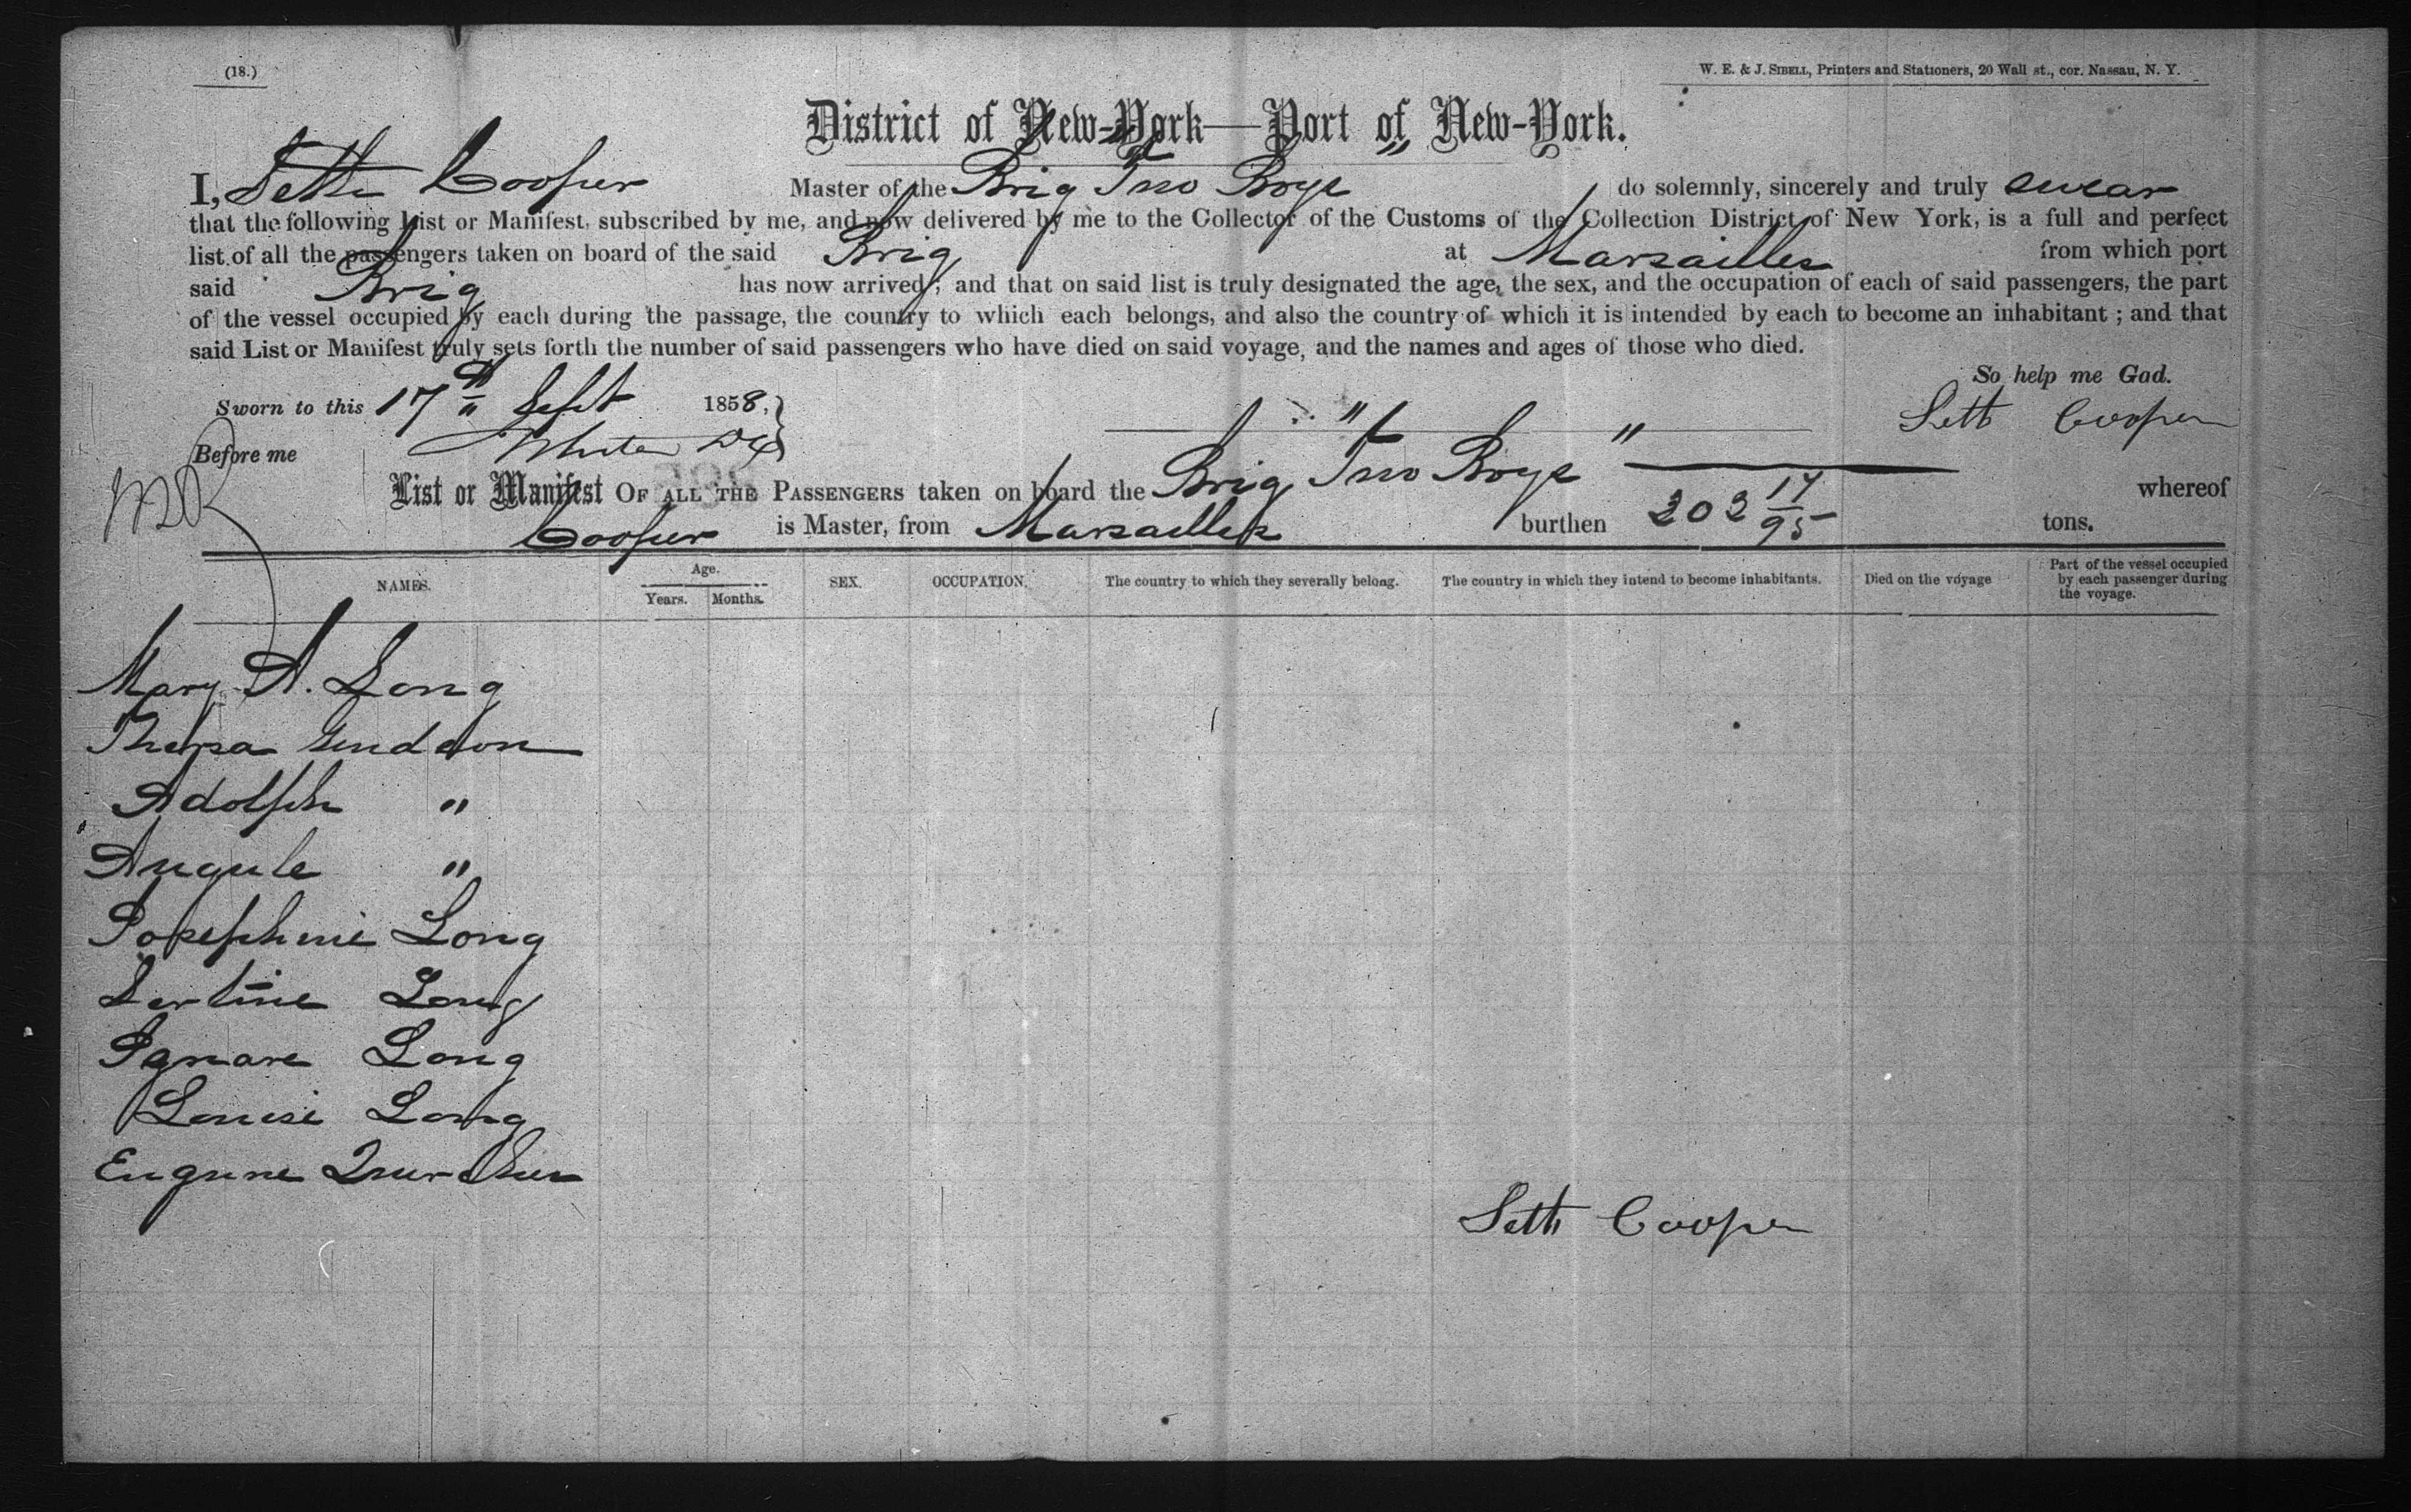 (18.)
W. E. & J. SIBELL, Printers and Stationers, 20 Wall st., cor. Nassau, N. Y.
District of New-York—Port of New-York.
I, Seth Cooper Master of the Brig "Two Boys" do solemnly, sincerely and truly swear
that the following List or Manifest, subscribed by me, and now delivered by me to the Collector of the Customs of the Collection District of New York, is a full and perfect
list of all the passengers taken on board of the said Brig at Marsailles from which port
said Brig has now arrived; and that on said list is truly designated the age, the sex, and the occupation of each of said passengers, the part
of the vessel occupied by each during the passage, the country to which each belongs, and also the country of which it is intended by each to become an inhabitant; and that
said List or Manifest truly sets forth the number of said passengers who have died on said voyage, and the names and ages of those who died.
So help me Gad.
Sworn to this 17th Sept 1858,
Seth Cooper
Before me
List or Manifest OF ALL THE PASSENGERS taken on board the Brig "Two Boys" whereof
Cooper is Master, from Marsailles burthen 202 17/95 tons.
NAMES. Age. Years. Months. SEX. OCCUPATION. The country to which they severally belong. The country in which they intend to become inhabitants. Died on the voyage Part of the vessel occupied by each passenger during the voyage.
Mary A. Long
Theresa
Adolph "
"
Josephine Long
Long
Long
Louise Long
Eugene
Seth Cooper